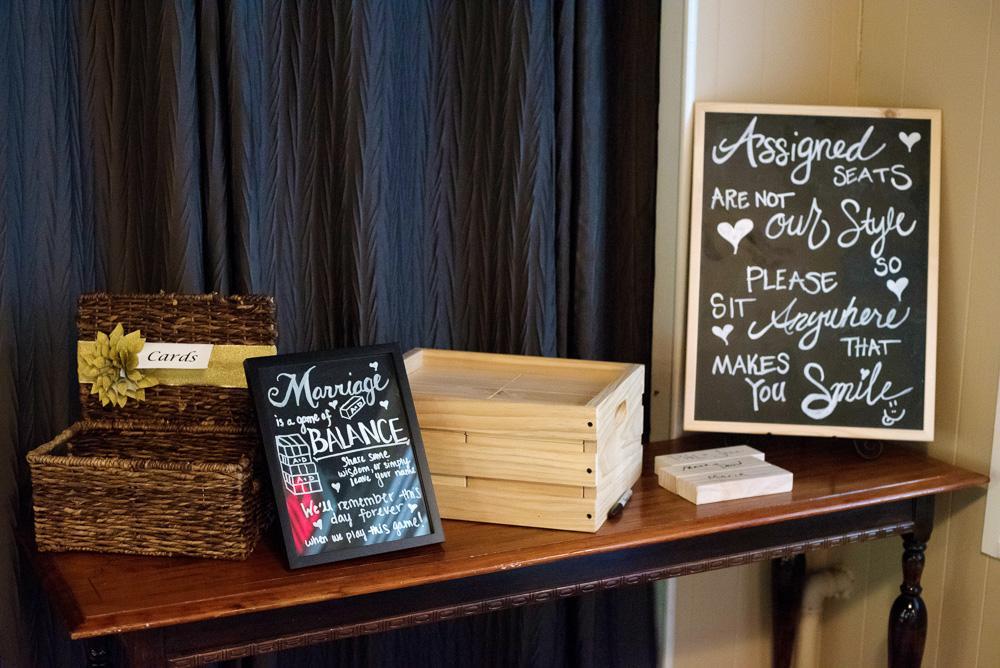 Cards
Marriage
is a game of
A+D
BALANCE
A+D
Share some
wisdom, or simply
leave your name
We'll remember this
day forever
when we play this game!
Assigned
SEATS
ARE NOT
our Style
SO
PLEASE
SIT Anywhere
THAT
MAKES
YOU Smile